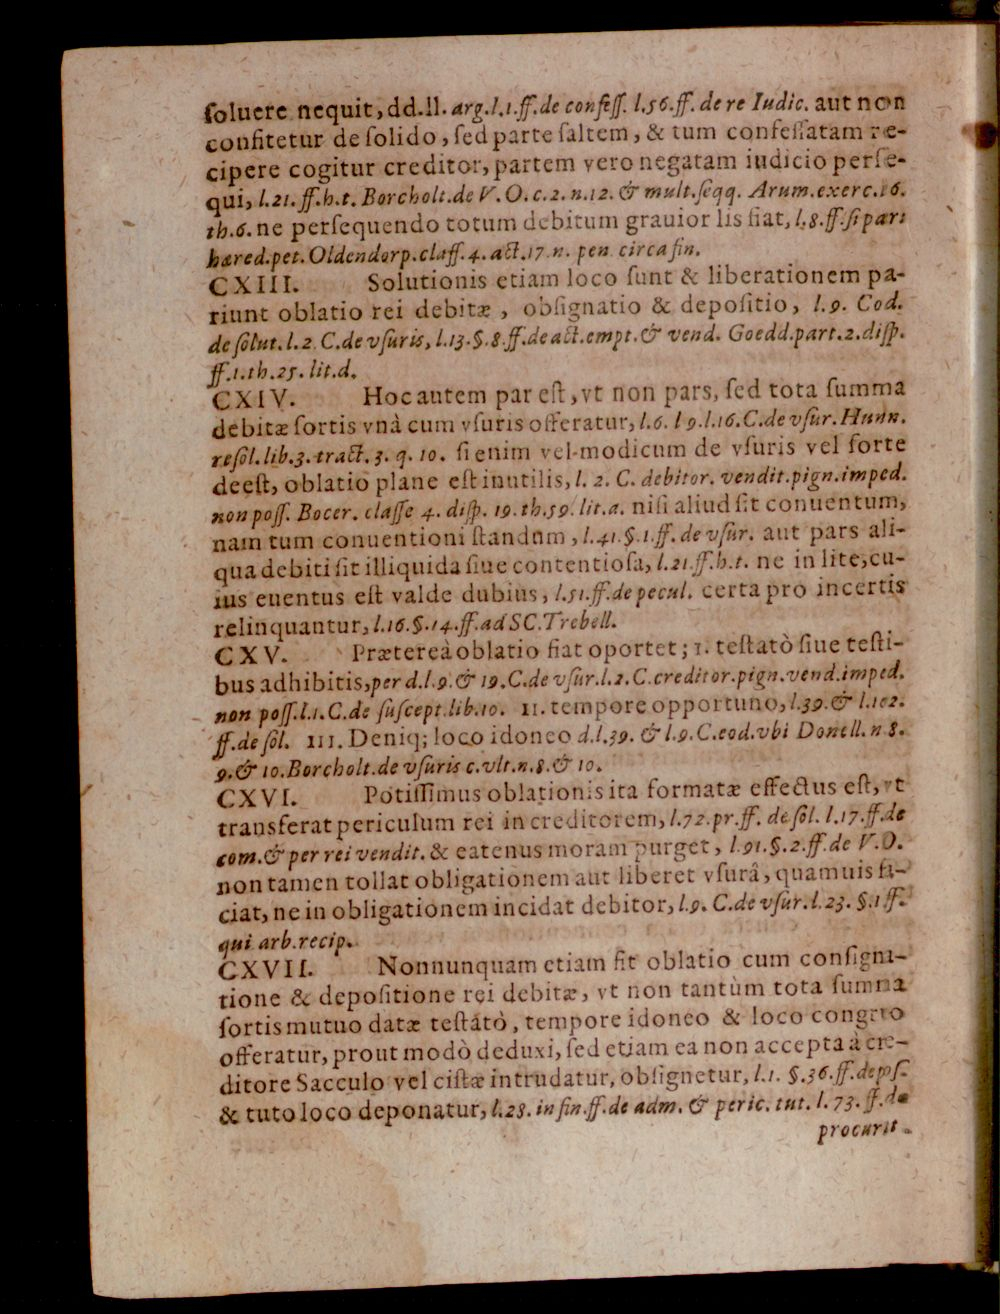 ſoluere nequit, dd. ll. arg. l. 1. ff. de confeſſ. l. 56. ff. de re Iudic. aut non
confitetur de ſolido, ſed parte ſaltem, & tum confeſſatam re-
cipere cogitur creditor, partem vero negatam iudicio perſe-
qui, l. 21. ff. h. t. Borcholt. de V. O. c. 2. n. 12. & mult. ſeqq. Arum. exerc. 16.
th. 6. ne perſequendo totum debitum grauior lis fiat, l. 8. ff. ſi pars
hæred. pet. Oldendorp. claſſ. 4. act. 17. n. pen circa fin.
CXIII. Solutionis etiam loco ſunt & liberationem pa-
riunt oblatio rei debitæ, obſignatio & depoſitio, l. 9. Cod.
de ſolut. l. 2 C. de vſuris, l. 13. §. 8. ff. de act. empt. & vend. Goedd. part. 2. diſp.
ff. 1. th. 25. lit. d.
CXIV. Hoc autem par eſt, vt non pars, ſed tota ſumma
debitæ ſortis vnâ cum vſuris offeratur, l. 6. l 9. l. 16. C. de vſur. Hunn.
reſol. lib. 3. tract. 3. q. 10. ſi enim vel modicum de vſuris vel ſorte
deeſt, oblatio plane eſt inutilis, l. 2. C. debitor. vendit. pign. imped.
non poſſ. Bocer. claſſe 4. diſp. 19. th. 59. lit. a. niſi aliud ſit conuentum,
nam tum conuentioni ſtandum, l. 41. §. 1. ff. de vſur. aut pars ali-
qua debiti ſit illiquida ſiue contentioſa, l. 21. ff. h. t. ne in lite, cu-
ius euentus eſt valde dubius, l. 51. ff. de pecul. certa pro incertis
relinquantur, l. 16. §. 14. ff. ad SC. Trebell.
CXV. Præterea oblatio fiat oportet; 1. teſtatò ſiue teſti-
bus adhibitis, per d. l. 9. & 19. C. de vſur. l. 2. C. creditor. pign. vend. imped.
non poſſ. l. 1. C. de ſuſcept. lib. 10. 11. tempore opportuno, l. 39. & l. 102.
ff. de ſol. 111. Deniq; loco idoneo d. l. 39. & l. 9. C. eod. vbi Donell. n 8.
9. & 10. Borcholt. de vſuris c. vlt. n. 8. & 10.
CXVI. Potiſſimus oblationis ita formatæ effectus eſt, vt
transferat periculum rei in creditorem, l. 72. pr. ff. de ſol. l. 17. ff. de
com. & per rei vendit. & eatenus moram purget, l. 91. §. 2. ff. de V. O.
non tamen tollat obligationem aut liberet vſurâ, quamuis fa-
ciat, ne in obligationem incidat debitor, l. 9. C. de vſur. l. 23. §. 1 ff.
qui arb. recip.
CXVII. Nonnunquam etiam fit oblatio cum conſigna-
tione & depoſitione rei debitæ, vt non tantùm tota ſumma
ſortis mutuo datæ teſtatò, tempore idoneo & loco congruo
offeratur, prout modò deduxi, ſed etiam ea non accepta à cre-
ditore Sacculo vel ciſtæ intrudatur, obſignetur, l. 1. §. 36. ff. depoſ.
& tuto loco deponatur, l. 28. in fin. ff. de adm. & peric. tut. l. 73. ff. de
procurat.